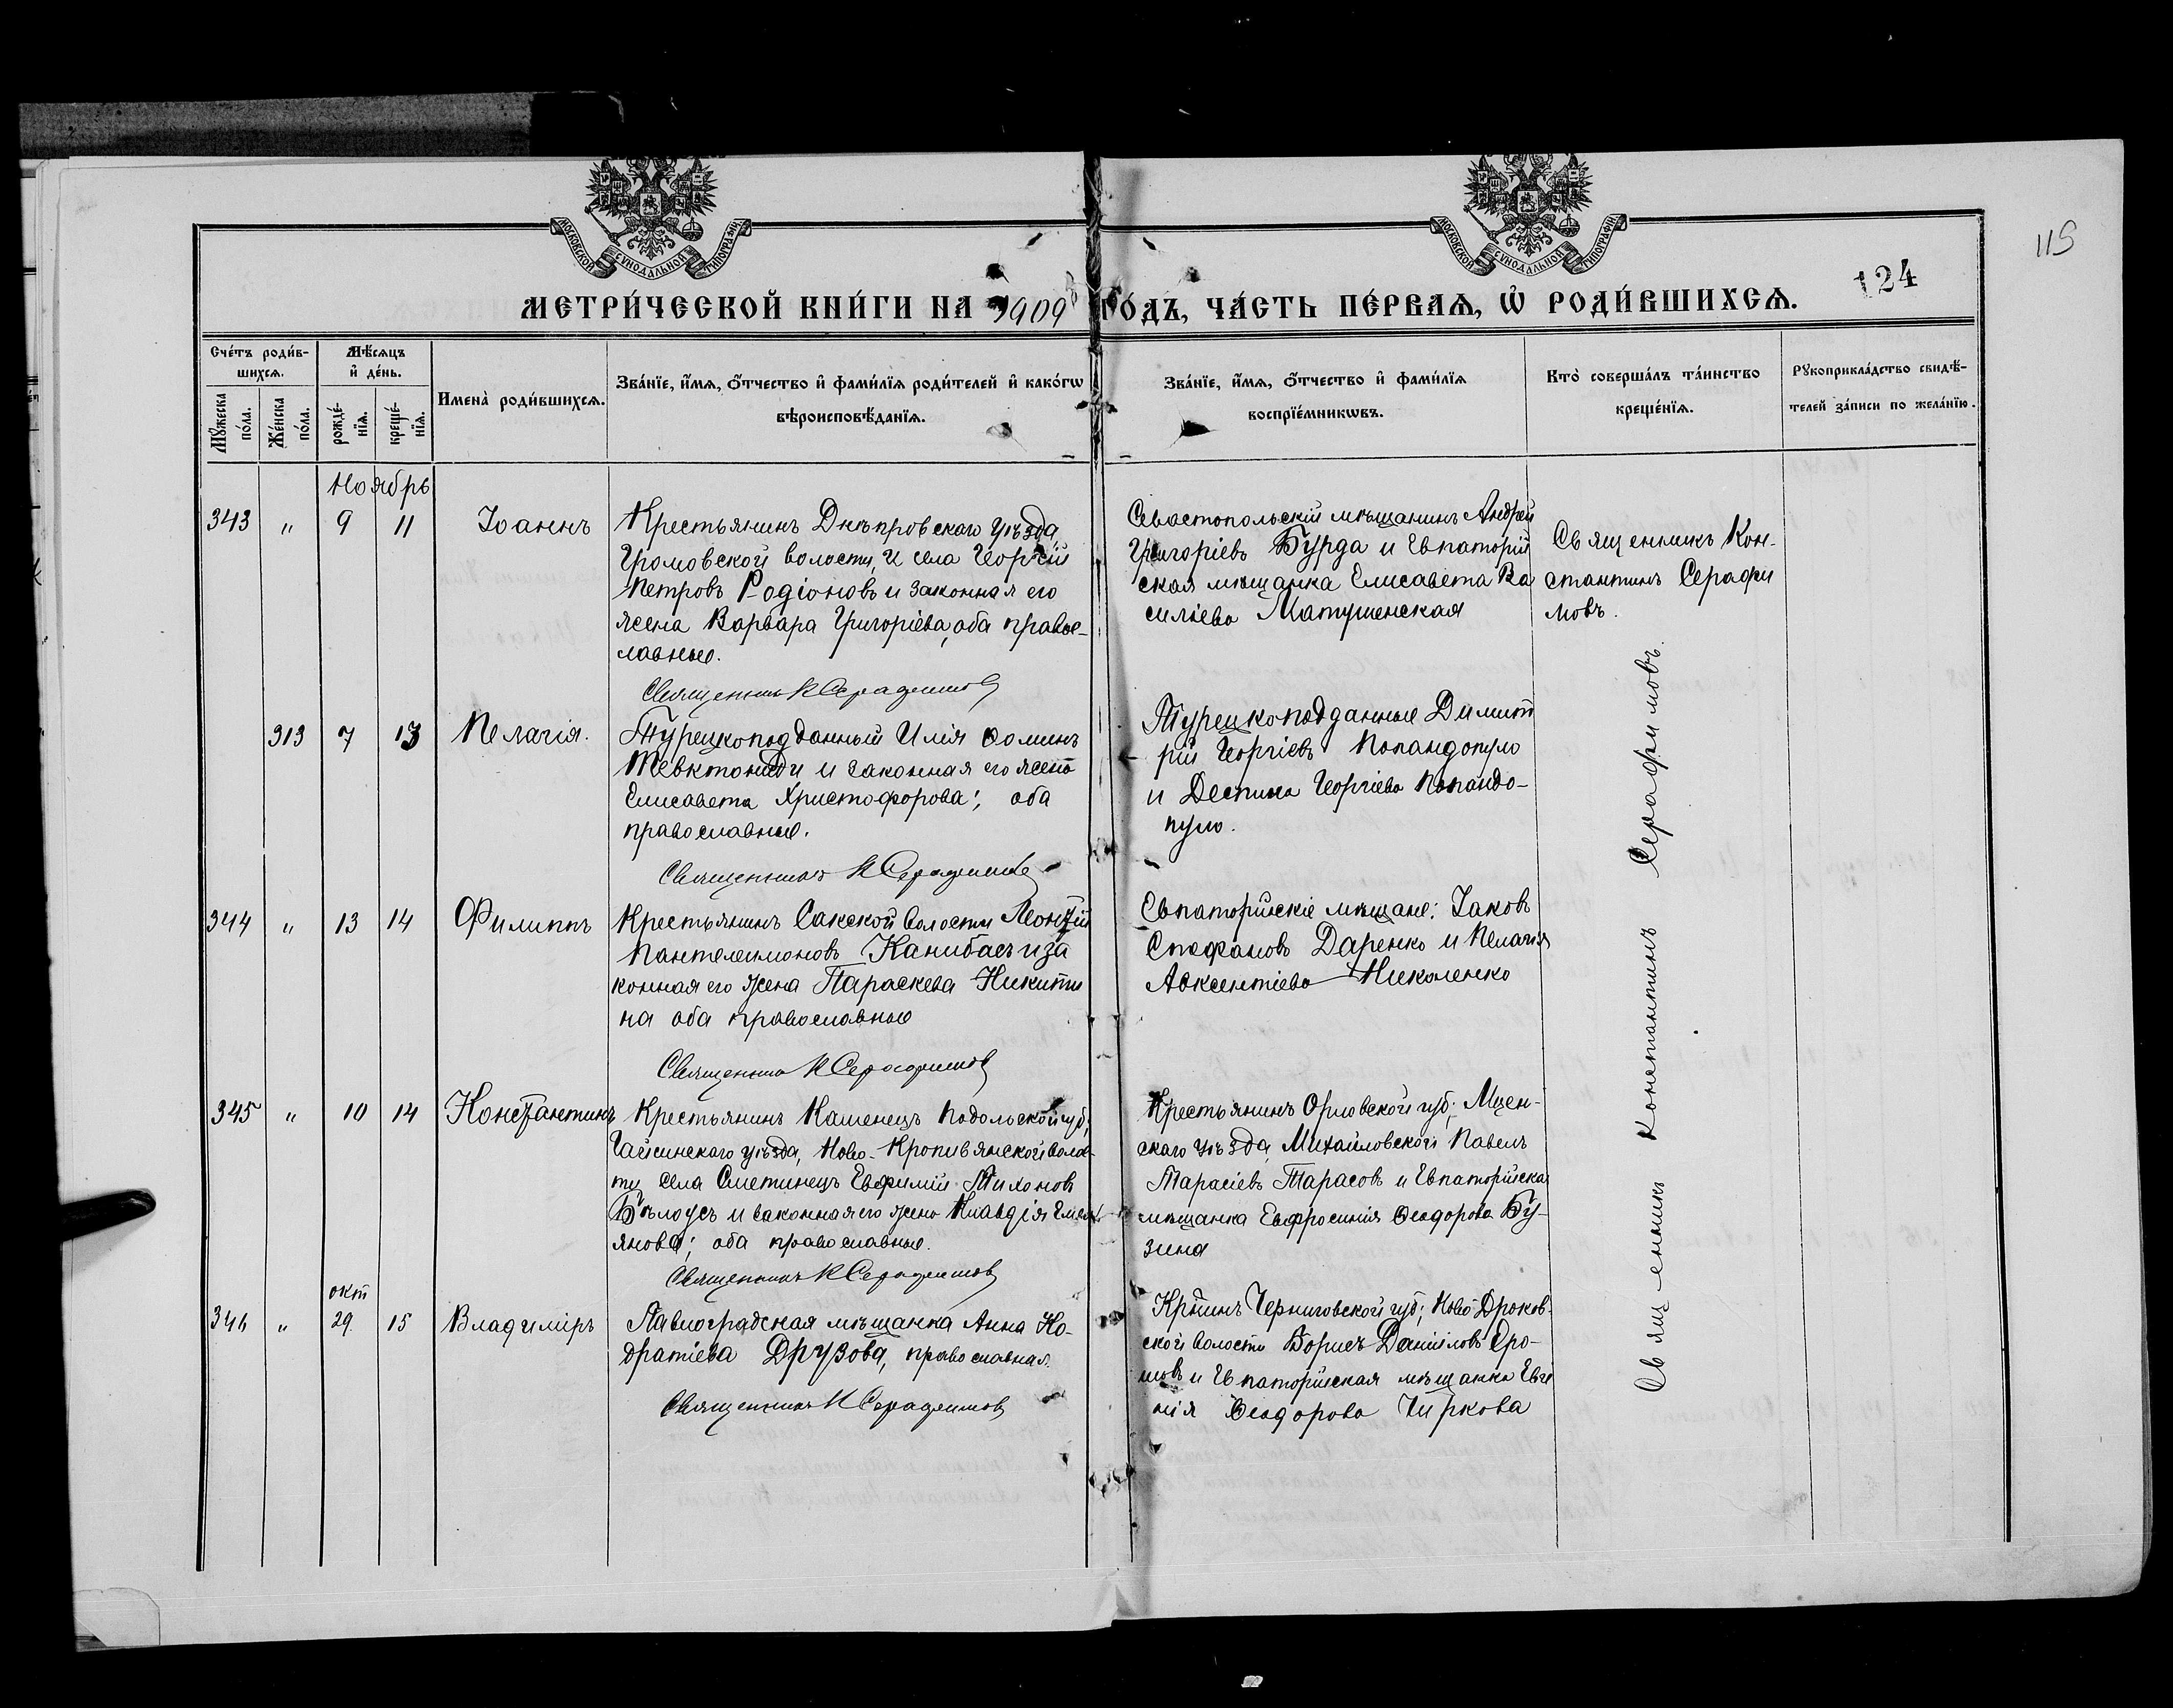 МОСКОВСКОЙ СѴНОДАЛЬНОЙ ТИПОГРАФІИ
МОСКОВСКОЙ СѴНОДАЛЬНОЙ ТИПОГРАФІИ
115
124
МЕТРИ́ЧЕСКОЙ КНИ́ГИ НА 1909 ГО́ДЪ, ЧА́СТЬ ПЕ́РВАѦ, Ѡ РОДИ́ВШИХСѦ.
Сче́тъ роди́в-
шихсѧ.
Мꙋ́жеска по́ла.
Же́нска по́ла.
Мѣ́сѧцъ
и де́нь.
рожде́-
нїѧ.
креще́-
нїѧ.
Имена̀ роди́вшихсѧ.
Зва́нїе, и́мѧ, ѻ́тчество и фами́лїѧ роди́телей и како́гѡ
вѣроисповѣ́данїѧ.
Зва́нїе, и́мѧ, ѻ́тчество и фами́лїѧ
воспрїе́мникѡвъ.
Кто̀ соверша́лъ та́инство
креще́нїѧ.
Рꙋкоприкла́дство свидѣ́-
телей за́писи по жела́нїю.
Ноябрь
343 " 9 11 Іоаннъ
Крестьянинъ Днѣпровскаго уѣзда,
Громовской волости, и села Георгій
Петровъ Родіоновъ и законная его
жена Варвара Григоріева, оба правос-
лавные.
Священникъ К Серафимовъ
Севастопольскій мѣщанинъ Андрей
Григоріевъ Бурда и Евпаторій
ская мѣщанка Елисавета Ва
силіева Матушенская
Священникъ Кон-
стантинъ Серафи
мовъ.
313 7 13 Пелагія.
Турецкоподданный Илія Ѳоминъ
Тевктониди и законная его жена
Елисавета Христофорова; оба
православные.
Священникъ К Серафимовъ
Турецкоподданные Димит
рій Георгіевъ Попандопуло
и Деспина Георгіева Попандо-
пуло.
344 " 13 14 Филиппъ
Крестьянинъ Сакской волости Леонтій
Пантелеимоновъ Канибасъ и за
конная его жена Параскева Никити
на оба православные
Священникъ К Серафимовъ
Евпаторійскіе мѣщане: Іаковъ
Стефановъ Даренко и Пелагія
Авксентіева Николенко
345 " 10 14 Константинъ
Крестьянинъ Каменецъ Подольской губ;
Гайсинскаго уѣзда, Ново-Кропивянской волос
ти, села Сметинецъ Евфимій Тихоновъ
Бѣлоусъ и законная его жена Клавдія Емель
янова; оба православные.
Священникъ К Серафимовъ
Крестьянинъ Орловской губ; Мцен-
скаго уѣзда, Михайловской Павелъ
Тарасіевъ Тарасовъ и Евпаторійская
мѣщанка Евфросинія Ѳеодорова Бу-
зина
окт
346 " 29 15 Владиміръ
Павлоградская мѣщанка Анна Ко-
дратіева Друзова, православная.
Священникъ К Серафимовъ
Кр̃тнинъ Черниговской губ; Ново-Дроков-
ской волости Борисъ Даніиловъ Еро-
шовъ и Евпаторійская мѣщанка Евге
нія Ѳеодорова Чиркова
Священникъ Константинъ Серафимовъ.